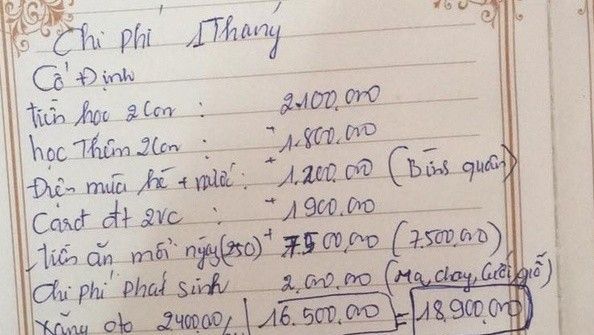 Chi phí 1 Tháng
Cố Định
tiền học 2 con : 2.100.000
học Thêm 2 con : + 1.800.000
Điện mùa hè + nước : + 1.200.000 (Bình quân)
Card đt 2vc : + 1900.000
tiền ăn mỗi ngày (250) + 7500.000 (7.500.000)
Chi phí phát sinh 2.000.000 (Ma, chay, cưới, giỗ)
Xăng oto 2400000 16.500.000 = 18.900.000